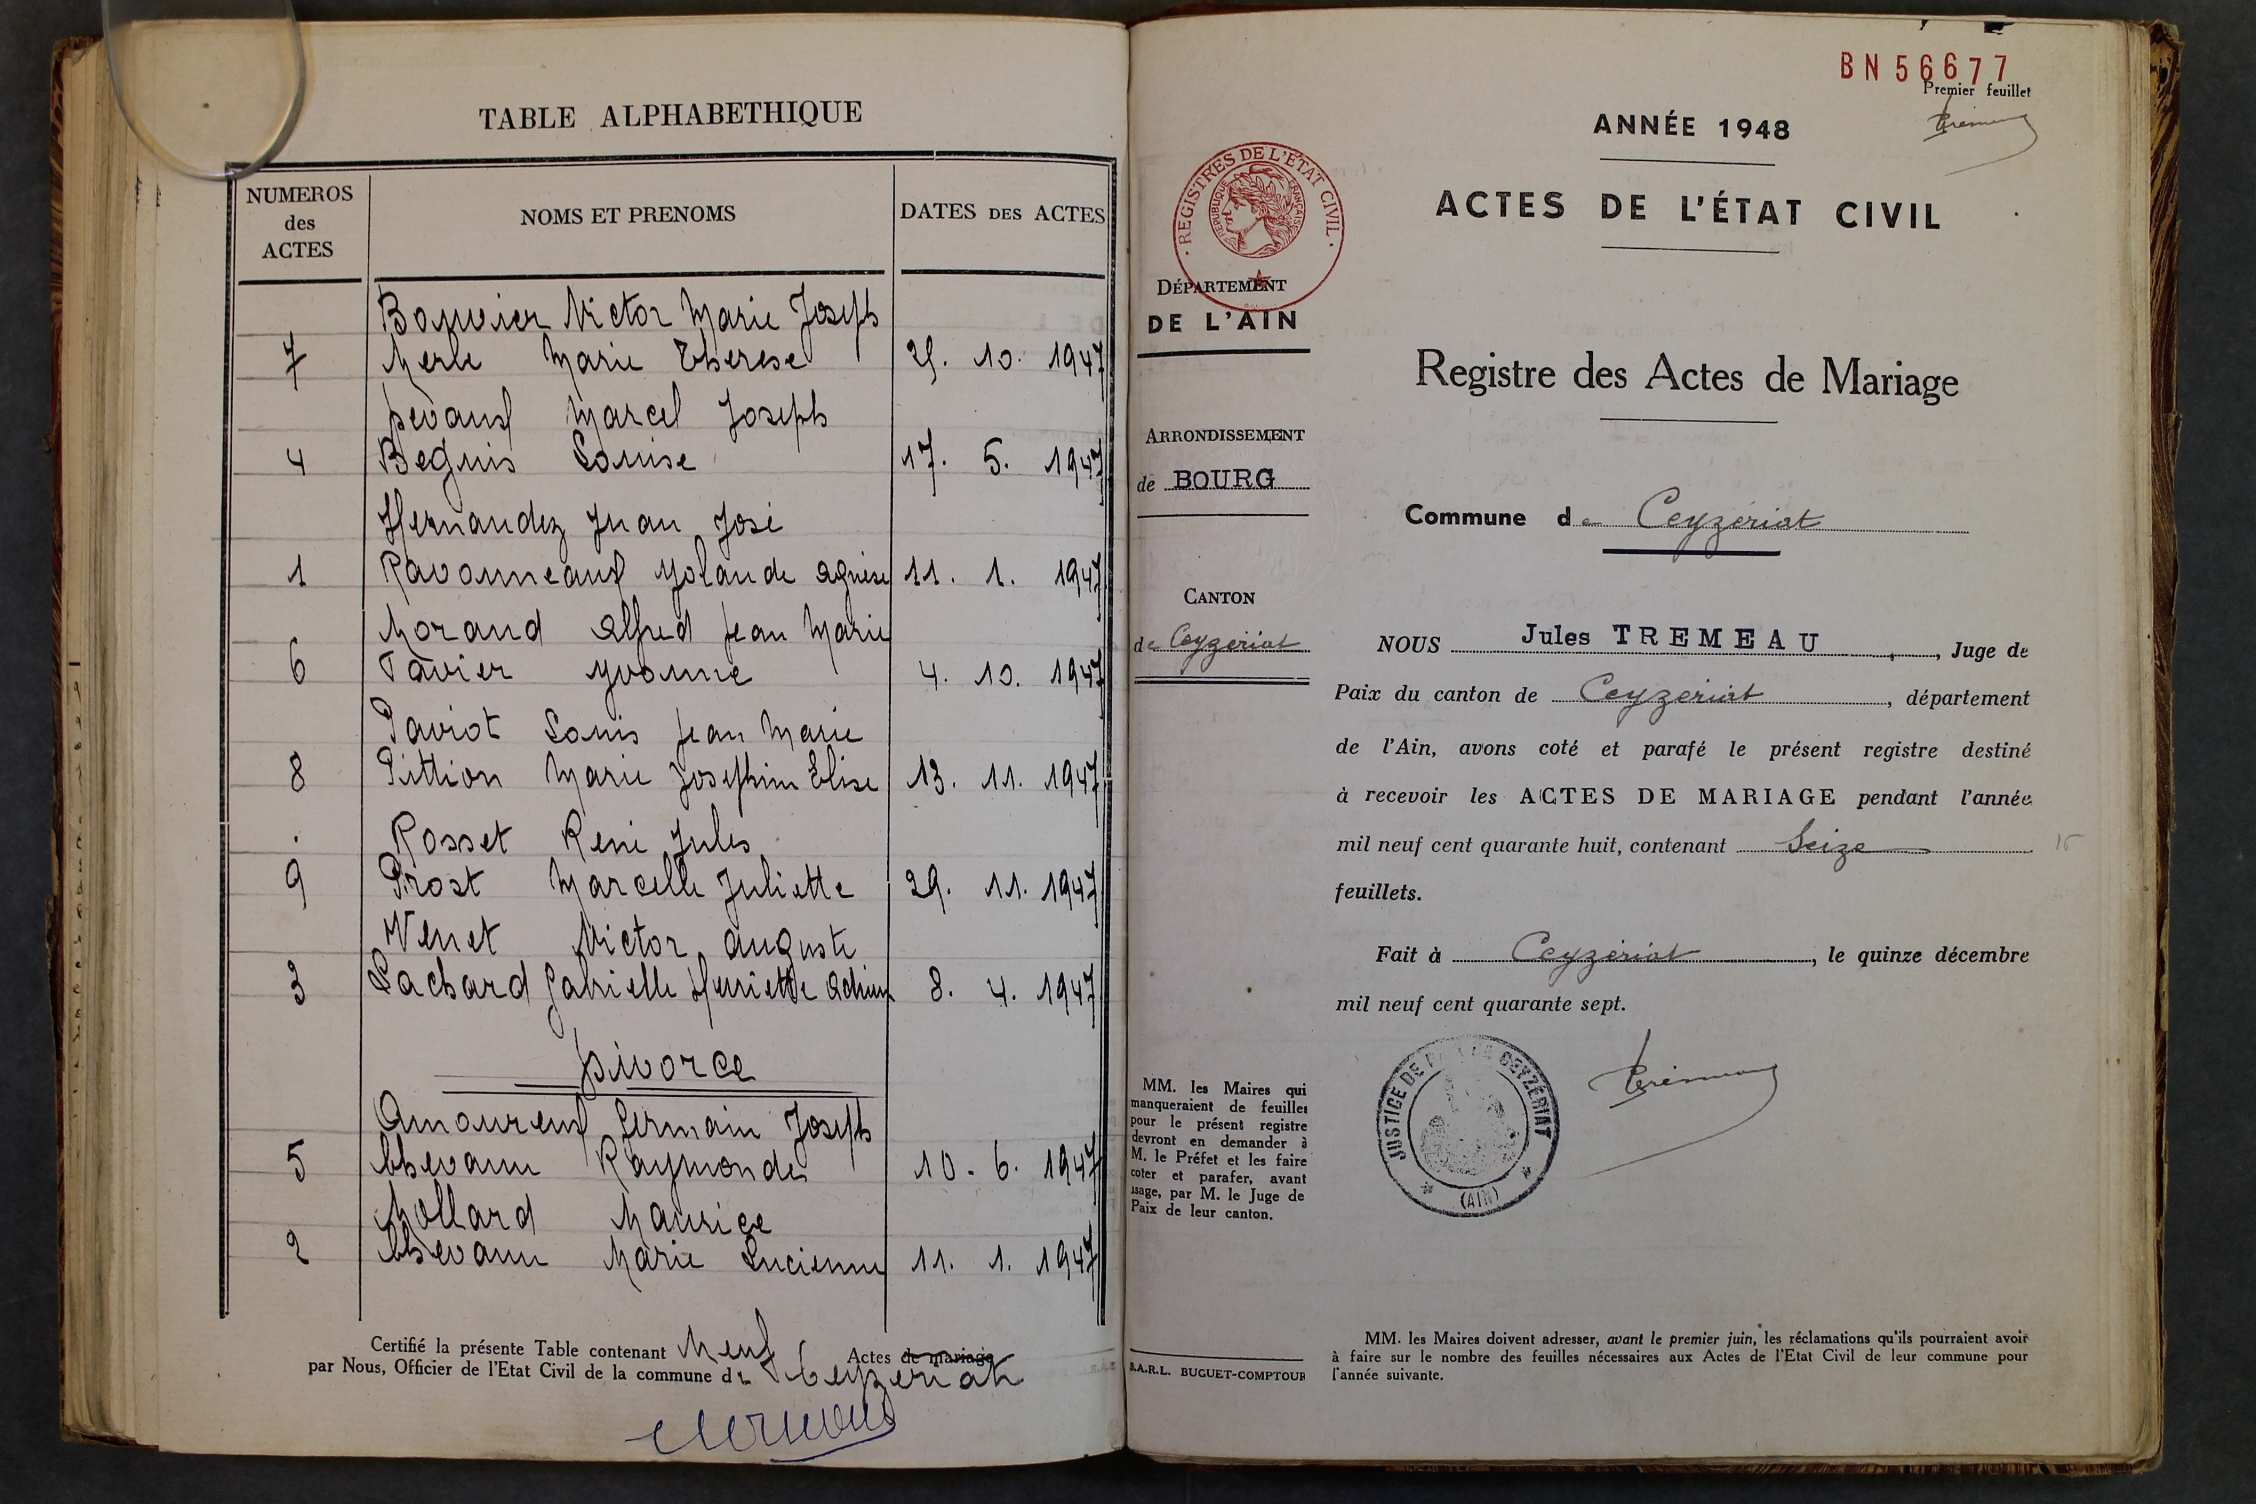 TABLE ALPHABETHIQUE
NUMEROS des ACTES
NOMS ET PRENOMS
DATES DES ACTES
Bouvier Victor Marie Joseph
7 Merle Marie Therese 25. 10. 1947
Devaux Marcel Joseph
4 Beguis Louise 17. 5. 1947
Hernandez Juan José
1 Ravonneaux Yolande Agnèse 11. 1. 1947
Morand Alfred Jean Marie
6 Tavier Yvonne 4. 10. 1947
Paviot Louis Jean Marie
8 Pittion Marie Josephine Elise 13. 11. 1947
Rosset René Jules
9 Prost Marcelle Juliette 29. 11. 1947
Venet Victor Auguste
3 Lachard Gabrielle Henriette 8. 4. 1947
Divorce
Amoureux Germain Joseph
5 Chevann Raymonde 10. 6. 1947
Mollard Maurice
2 Chevann Marie Lucienne 11. 1. 1947
Certifié la présente Table contenant Neuf Actes de mariage
par Nous, Officier de l'Etat Civil de la commune de Ceyzeriat
BN 56677
Premier feuillet
ANNÉE 1948
ACTES DE L'ÉTAT CIVIL
REGISTRES DE L'ETAT CIVIL
REPUBLIQUE FRANÇAISE
DÉPARTEMENT
DE L'AIN
ARRONDISSEMENT
de BOURG
CANTON
de Ceyzériat
MM. les Maires qui
manqueraient de feuilles
pour le présent registre
devront en demander à
M. le Préfet et les faire
coter et parafer, avant
usage, par M. le Juge de
Paix de leur canton.
S.A.R.L. BUGUET-COMPTOUR
Registre des Actes de Mariage
Commune de Ceyzériat
NOUS Jules TREMEAU, Juge de
Paix du canton de Ceyzériat, département
de l'Ain, avons coté et parafé le présent registre destiné
à recevoir les ACTES DE MARIAGE pendant l'année
mil neuf cent quarante huit, contenant Seize
feuillets.
Fait à Ceyzériat, le quinze décembre
mil neuf cent quarante sept.
JUSTICE DE PAIX DE CEYZÉRIAT
(AIN)
MM. les Maires doivent adresser, avant le premier juin, les réclamations qu'ils pourraient avoir
à faire sur le nombre des feuilles nécessaires aux Actes de l'Etat Civil de leur commune pour
l'année suivante.